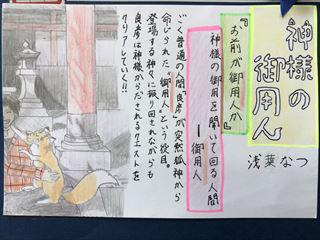 神様の
御用人
浅葉なつ
『お前が御用人か』
神様の御用を聞いて回る人間
―御用人
ごく普通の人間良彦が突然狐神から
命じられた"御用人"という役目。
登場する神々に振り回されながらも
良彦は神様からだされるクエストを
クリアしていく!!